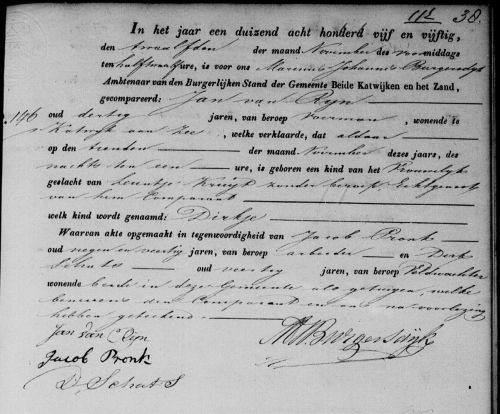 38
In het jaar een duizend acht honderd vijf en vijftig,
den twaalfden der maand November des voormiddags
ten half twaalf ure, is voor ons Marinus Johannis Burgersdijk
Ambtenaar van den Burgerlijken Stand der Gemeente Beide Katwijken en het Zand,
gecompareerd: Jan van Rijn
146 oud dertig jaren, van beroep Voerman, wonende te
Katwijk aan Zee, welke verklaarde, dat aldaar
op den tienden der maand November dezes jaars, des
nachts ten een ure, is geboren een kind van het Vrouwelijk
geslacht van Leentje Kruijt zonder beroep Echtgenoot
van hem Comparant
welk kind wordt genaamd: Dirkje
Waarvan akte opgemaakt in tegenwoordigheid van Jacob Pronk
oud negen en veertig jaren, van beroep arbeider en Dirk
Schuts oud veertig jaren, van beroep Veldwachter
wonende beide in deze Gemeente als getuigen, welke
benevens den Comparant na voorlezing
hebben geteekend
Jan van Rijn
MJBurgersdijk
Jacob Pronk
D. Schuts